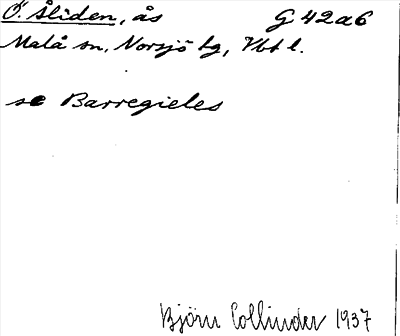 Ö. Åliden, ås G 42a6
Malå sn, Norsjö tg, Vbt l.
se Barregieles
Björn Collinder 1937